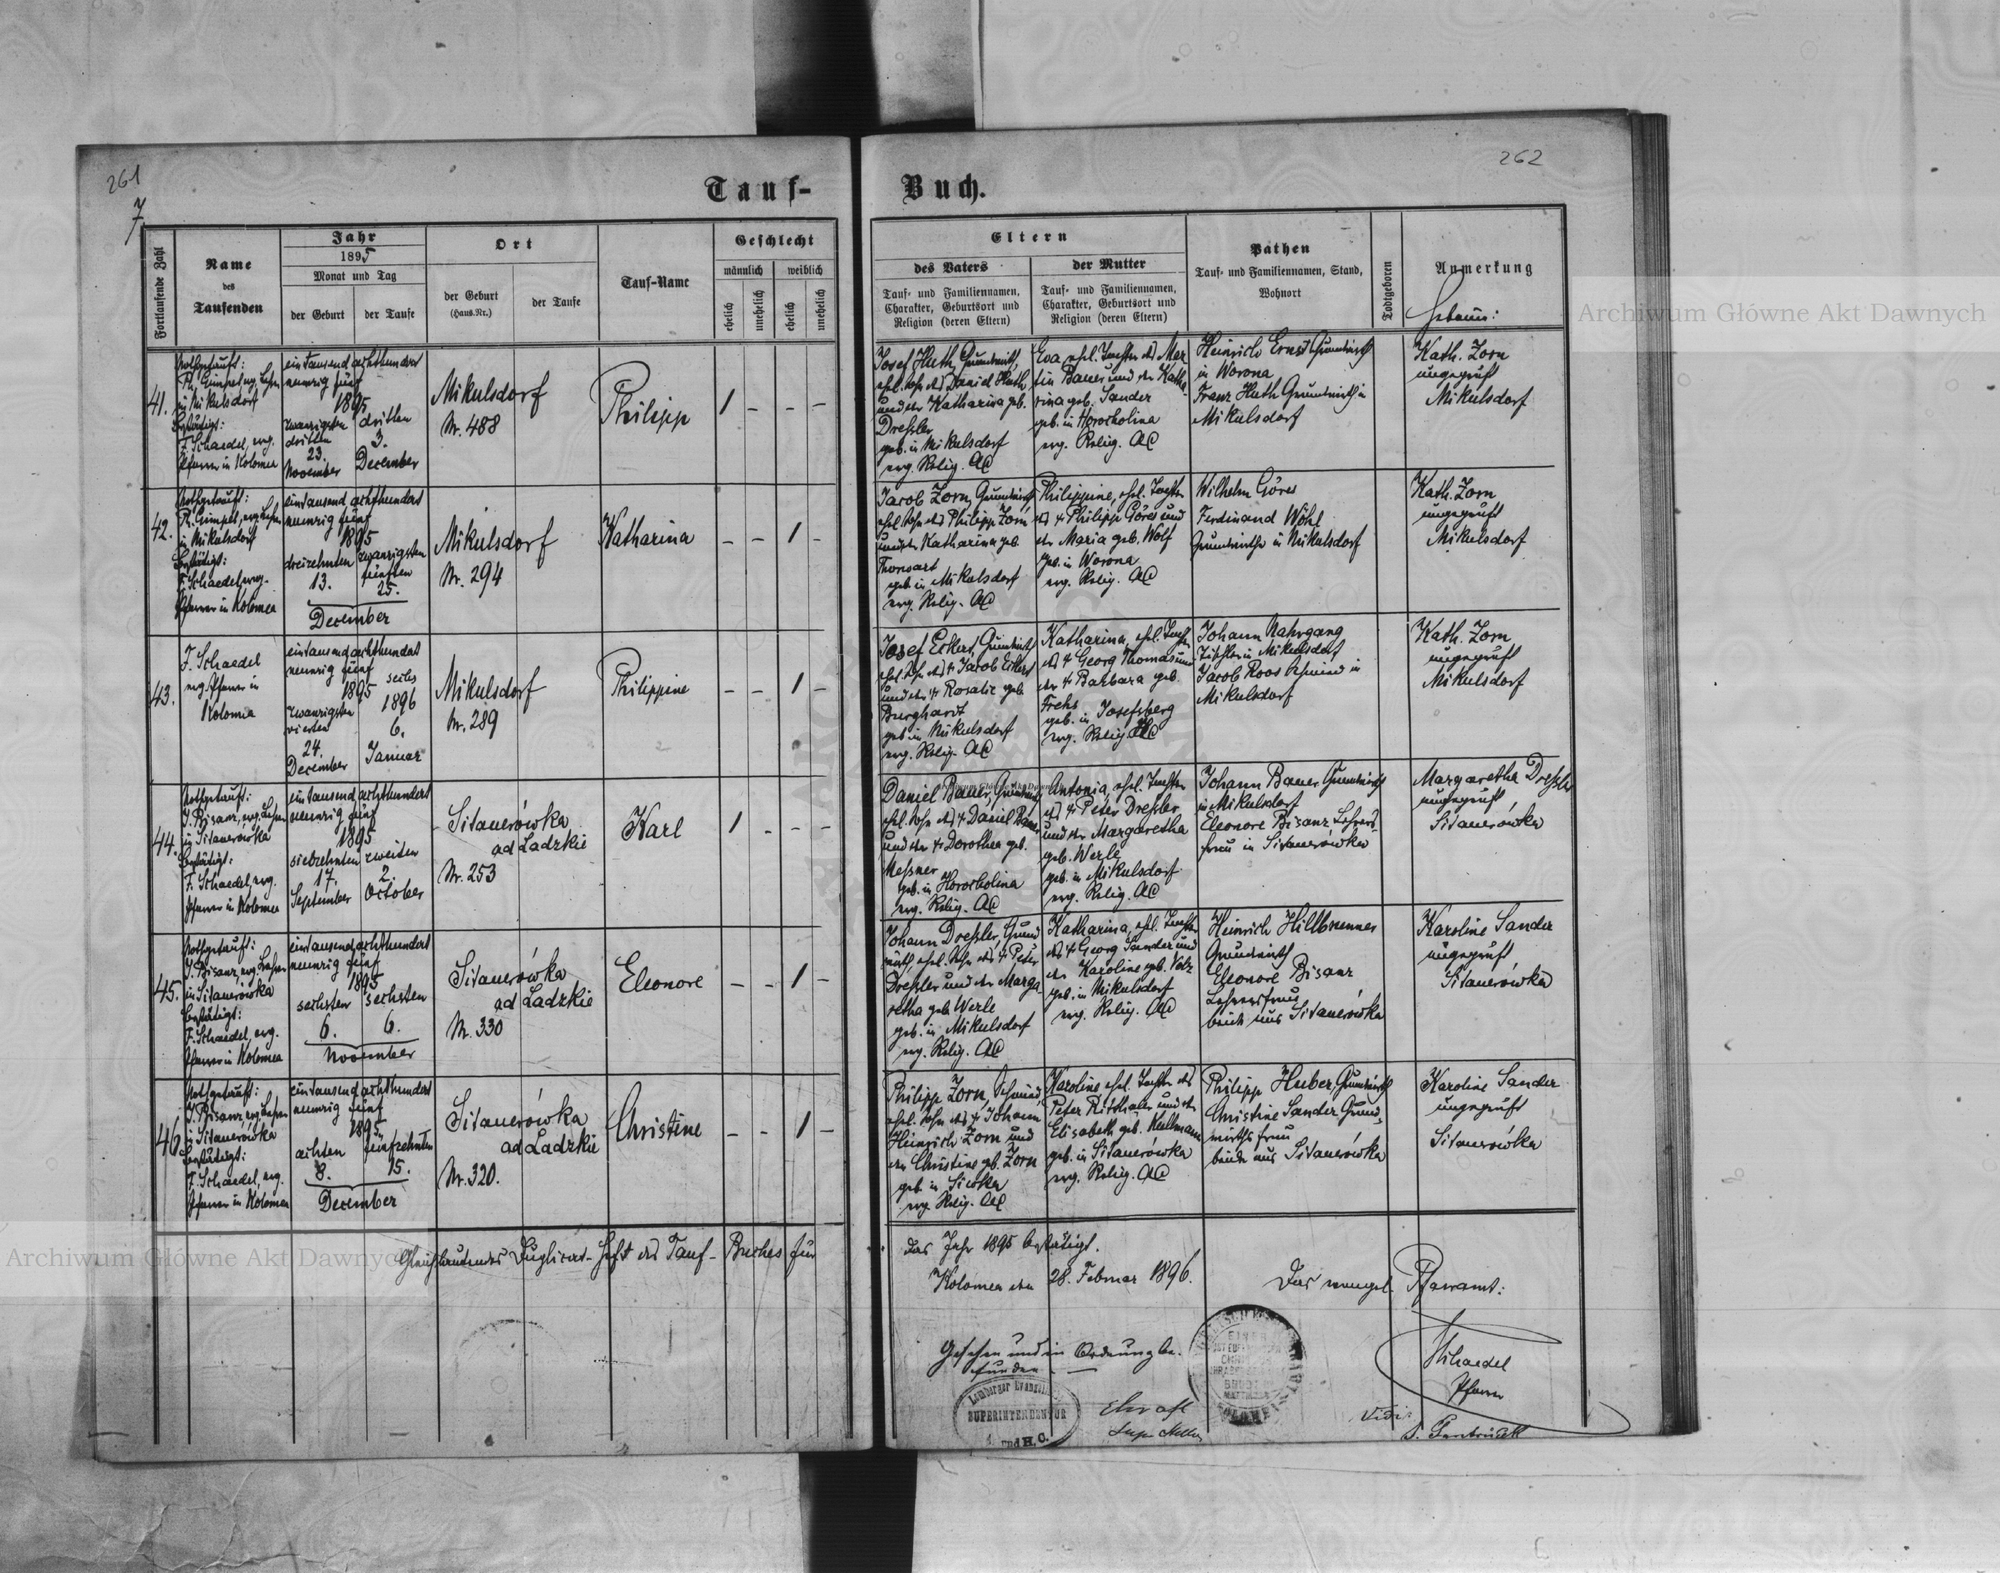 261
262
7
Tauf-
Buch.
Fortlaufende Zahl
Name
des
Taufenden
Jahr
1895
Monat und Tag
der Geburt
der Taufe
Ort
der Geburt
(Haus.Nr.)
der Taufe
Tauf-Name
Geschlecht
männlich
weiblich
ehelich
unehelich
ehelich
unehelich
Eltern
des Vaters
Tauf- und Familiennamen,
Charakter, Geburtsort und
Religion (deren Eltern)
der Mutter
Tauf- und Familiennamen,
Charakter, Geburtsort und
Religion (deren Eltern)
Pathen
Tauf- und Familiennamen, Stand,
Wohnort
Todtgeboren
Anmerkung
41.
Nothgetauft:
in Mikulsdorf
bestätigt:
F. Schaedel, evg.
Pfarrer in Kolomea
eintausend achthundert
neunzig fünf
1895
zwanzigsten
dritten
23.
November
dritten
3.
December
Mikulsdorf
Nr. 488
Philipp
1 - - -
Josef Huth, Grundwirth,
ehel. Sohn des Daniel Huth
und der Katharina geb.
Dreßler
geb. in Mikulsdorf
evg. Relig. AC
Eva, ehel. Tochter des Mar
tin Bauer und der Katha
rina geb. Sander
geb. in Horocholina
evg. Relig. AC
Heinrich Ernst Grundwirth
in Worona
Franz Huth Grundwirth in
Mikulsdorf
Kath. Zorn
ungeprüft
Mikulsdorf
42.
Nothgetauft:
Ph. Gimpel, evg. Lehrer
in Mikulsdorf
bestätigt:
F. Schaedel, evg.
Pfarrer in Kolomea
eintausend achthundert
neunzig fünf
1895
dreizehnten
13.
zwanzigsten
fünften
25.
December
Mikulsdorf
Nr. 294
Katharina
- - 1 -
Jacob Zorn, Grundwirth
ehel. Sohn des Philipp Zorn
und der Katharina geb.
geb. in Mikulsdorf
evg. Relig. AC
Philippine, ehel. Tochter
des + Philipp Göres und
der Maria geb. Wolf
geb. in Worona
evg. Relig. AC
Wilhelm Göres
Ferdinand Wohl
Grundwirthe in Mikulsdorf
Kath. Zorn
ungeprüft
Mikulsdorf
43.
F. Schaedel
evg. Pfarrer in
Kolomea
eintausend achthundert
neunzig fünf
1895
zwanzigsten
vierten
24.
December
sechs
1896
6.
Januar
Mikulsdorf
Nr. 289
Philippine
- - 1 -
Josef Eckert, Grundwirth
ehel. Sohn des + Jacob Eckert
und der + Rosalie geb.
Burghardt
geb. in Mikulsdorf
evg. Relig. AC
Katharina, ehel. Tochter
des + Georg Thomas und
der + Barbara geb.
geb. in Josefsberg
evg. Relig.
Johann Nahrgang
Tischler in Mikulsdorf
Jacob Roos Schmied in
Mikulsdorf
Kath. Zorn
ungeprüft
Mikulsdorf
44.
Nothgetauft:
J. Bisanz, evg. Lehrer
in Sitauerówka
bestätigt:
F. Schaedel, evg.
Pfarrer in Kolomea
eintausend achthundert
neunzig fünf
1895
siebzehnten
17.
September
zweiten
2.
October
Sitauerówka
ad Ladzkie
Nr. 253
Karl
1 - - -
Daniel Bauer, Grundwirth
ehel. Sohn des + Daniel Bauer
und der + Dorothea geb.
Messner
geb. in Horocholina
evg. Relig. AC
Antonia, ehel. Tochter
des + Peter Dreßler
und der Margaretha
geb. Werle
geb. in Mikulsdorf
evg. Relig. AC
Johann Bauer Grundwirth
in Mikulsdorf
Eleonore Bisanz, Lehrers-
frau in Sitauerowka
Margaretha Dreßler
ungeprüft
Sitauerówka
45.
Nothgetauft:
J. Bisanz, evg. Lehrer
in Sitauerówka
bestätigt:
F. Schaedel, evg.
Pfarrer in Kolomea
eintausend achthundert
neunzig fünf
1895
sechsten
6.
sechsten
6.
November
Sitauerówka
ad Ladzkie
Nr. 330
Eleonore
- - 1 -
Johann Dreßler, Grund
wirth, ehel. Sohn des + Peter
Dreßler und der Marga
retha geb. Werle
geb. in Mikulsdorf
evg. Relig. AC
Katharina, ehel. Tochter
des + Georg Sander und
der Karoline geb. Volz
geb. in Mikulsdorf
evg. Relig. AC
Heinrich Hillbrenner
Grundwirth
Eleonore Bisanz
Lehrersfrau
beide aus Sitauerówka
Karoline Sander
ungeprüft
Sitauerówka
46.
Nothgetauft:
J. Bisanz, evg. Lehrer
in Sitauerówka
bestätigt:
F. Schaedel, evg.
Pfarrer in Kolomea
eintausend achthundert
neunzig fünf
1895
achten
8.
fünfzehnten
15.
December
Sitauerówka
ad Ladzkie
Nr. 320.
Christine
- - 1 -
Philipp Zorn, Schmied,
ehel. Sohn des + Johann
Heinrich Zorn und
der Christine gb. Zorn
geb. in Siwka
evg. Relig. AC
Karoline ehel. Tochter des
Peter Rirthaler und der
Elisabeth geb. Kullmann
geb. in Sitauerówka
evg. Relig. AC
Philipp Huber, Grundwirth
Christine Sander Grund-
wirths frau
beide aus Sitauerówka
Karoline Sander
ungeprüft
Sitauerówka
Gleichlautendes Duplicat-Heft des Tauf-Buches für
das Jahr 1895 bestätigt.
Kolomea den 28. Februar 1896.
Das evangel. Pfarramt:
Schaedel
Pfarrer
Gesehen und in Ordnung be-
funden
Lemberger Evangel.
SUPERINTENDENTUR
A. und H. C.
Vidi
Archiwum Główne Akt Dawnych
Archiwum Główne Akt Dawnych